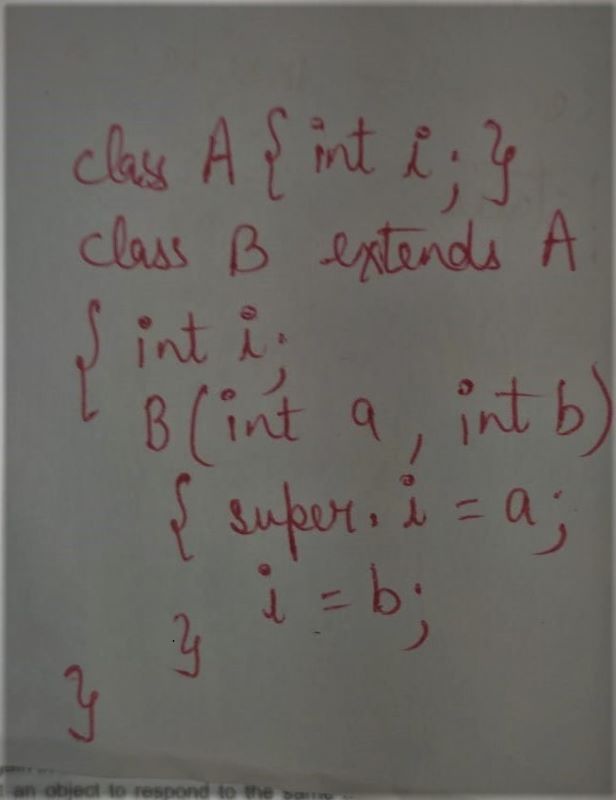 class A { int i; }
class B extends A
{ int i;
B(int a, int b)
{ super.i = a;
i = b;
}
}
an object to respond to the same